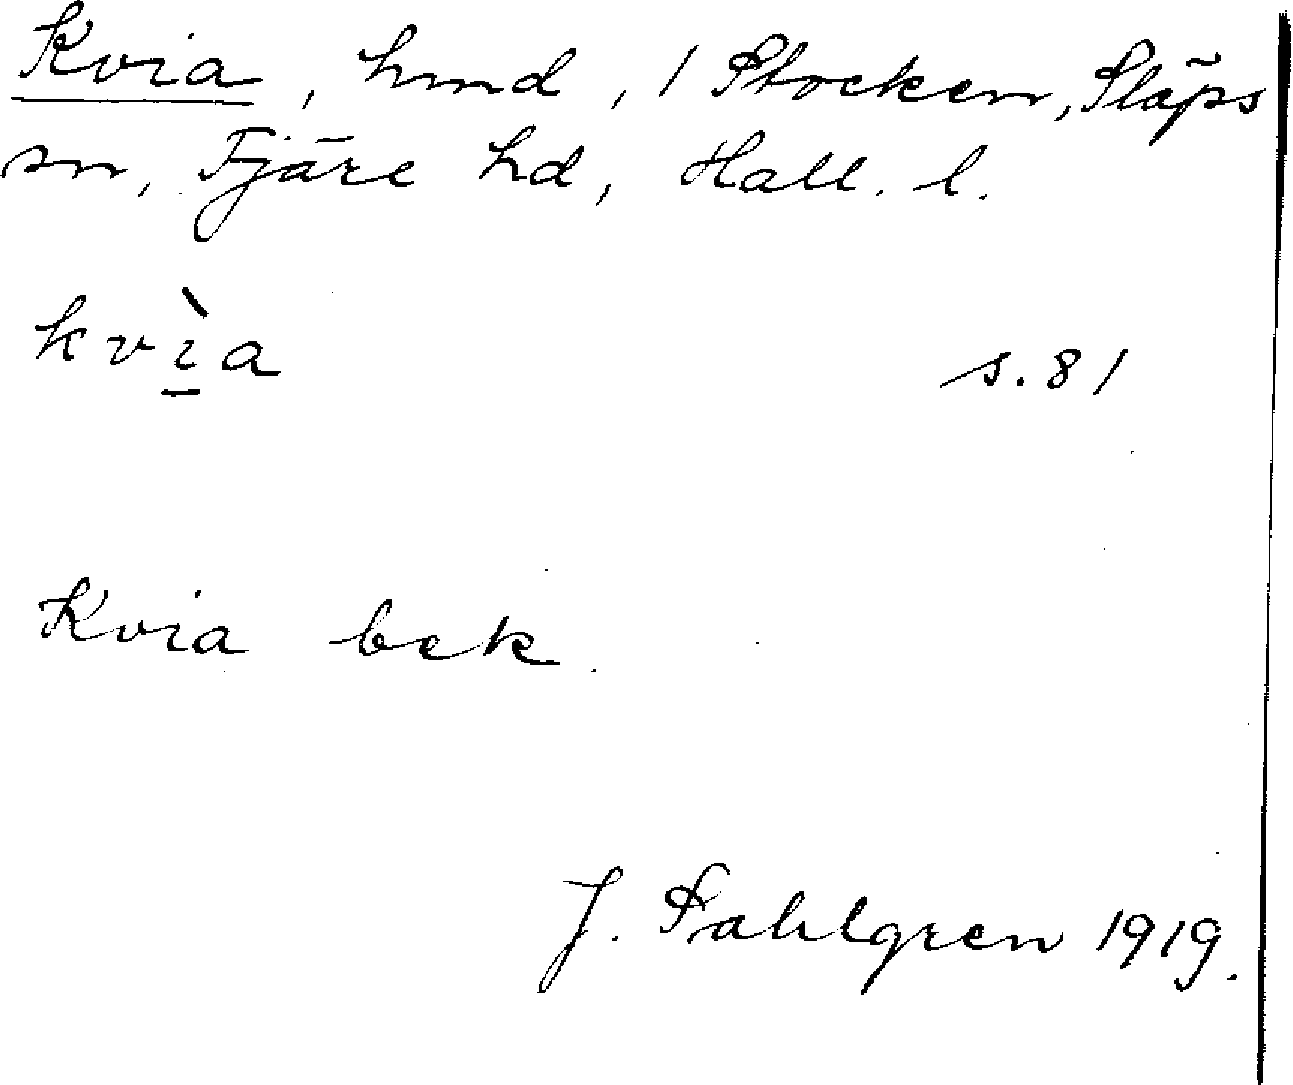 Kvia, hmd, 1 Stocken, Släps
sn, Fjäre hd, Hall. l.
kvı̱̀a
s. 81
Kvia bek.
J. Sahlgren 1919.